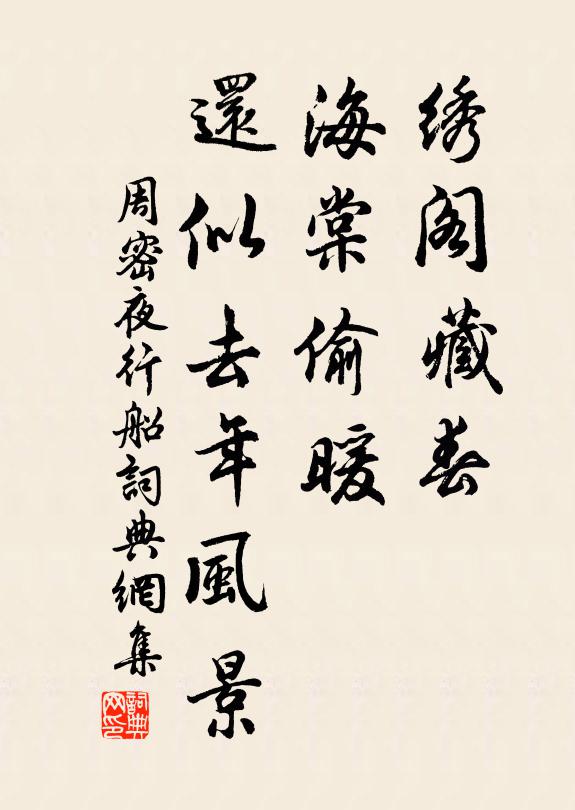 绣阁藏春
海棠偷暖
還似去年風景
周密夜行船詞典網集
詞典
网印